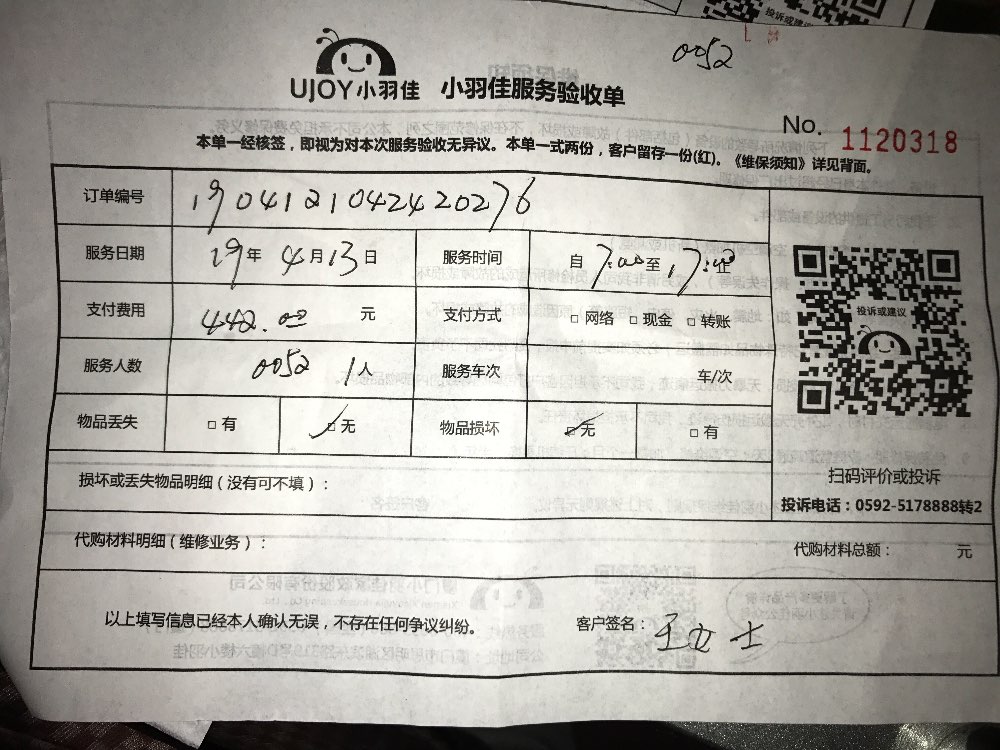 0052
UJOY小羽佳 小羽佳服务验收单
No. 1120318
本单一经核签，即视为对本次服务验收无异议。本单一式两份，客户留存一份(红)。《维保须知》详见背面。
订单编号 1904121042420276
服务日期 19年4月13日 服务时间 自7:00至17:00止
支付费用 442.00元 支付方式 □网络 □现金 □转账
服务人数 0052 1人 服务车次 车/次
物品丢失 □有 ☑无 物品损坏 ☑无 □有
投诉或建议
扫码评价或投诉
投诉电话：0592-5178888转2
损坏或丢失物品明细（没有可不填）：
代购材料明细（维修业务）： 代购材料总额： 元
以上填写信息已经本人确认无误，不存在任何争议纠纷。 客户签名：王女士